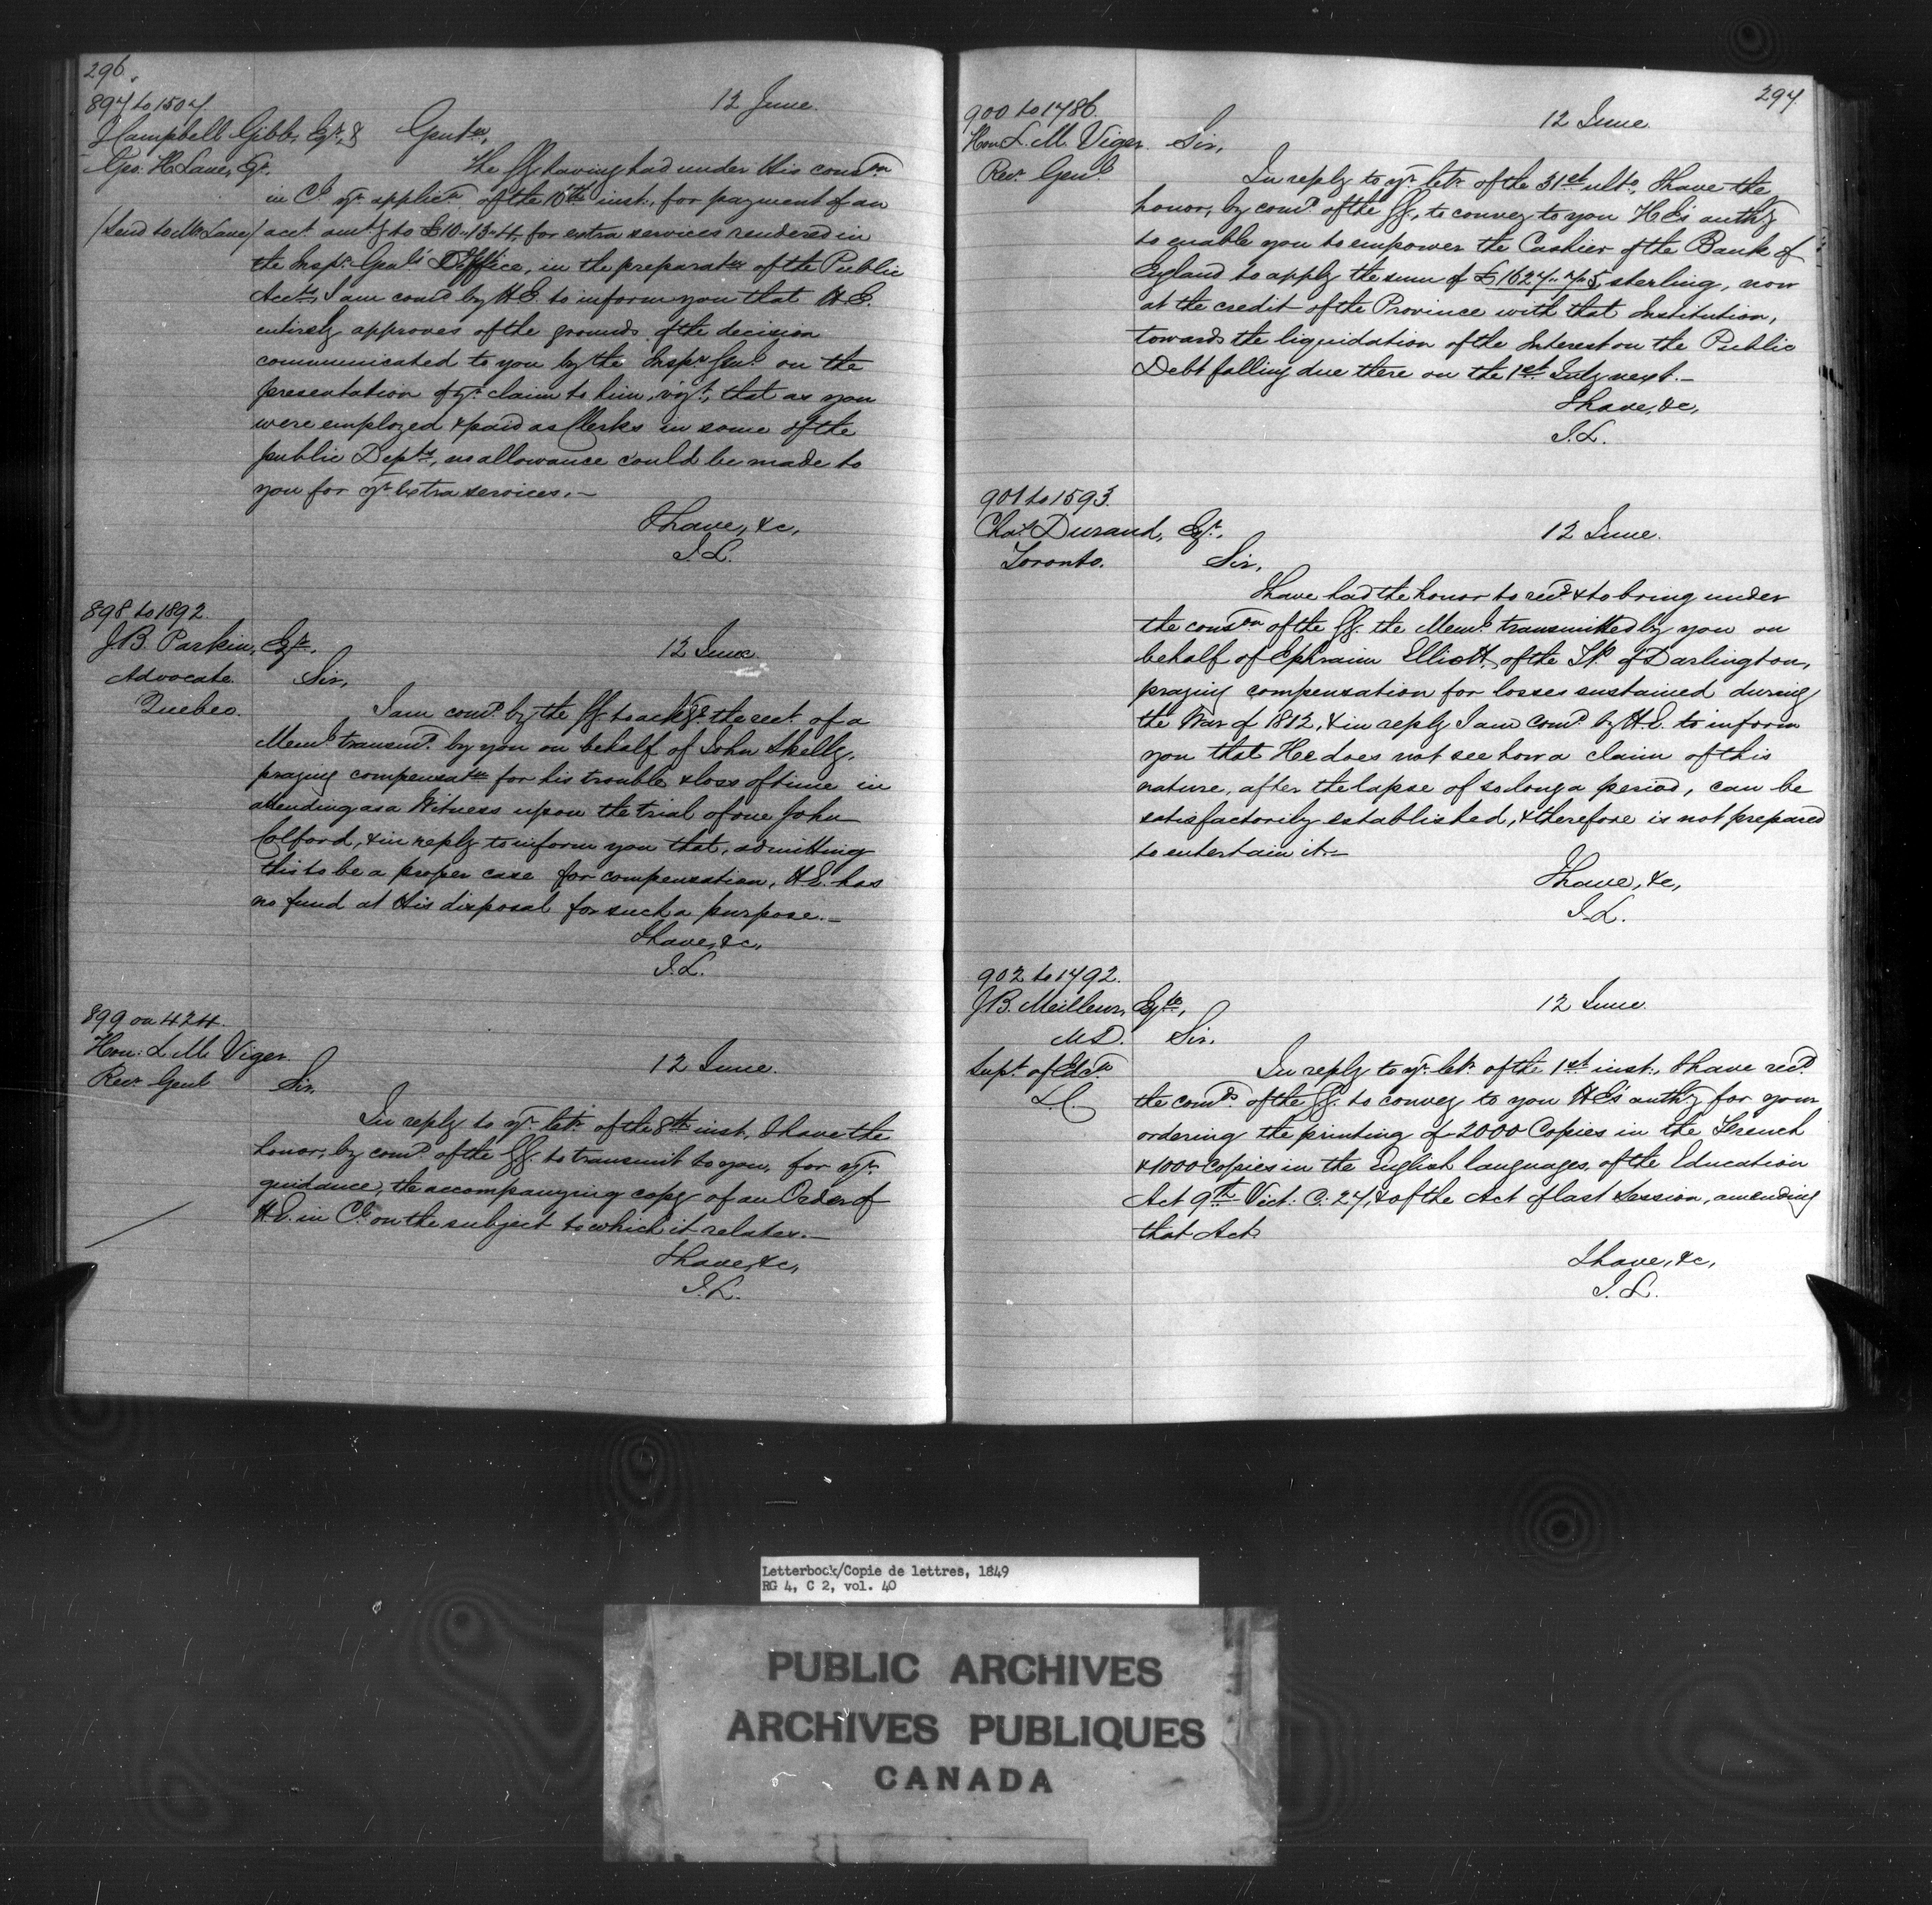 296.
897 to 1507.
12 June.
J Campbell Gibb, Esqr., &
Geo: H Lane, Er.
Gentn,
The GG having had under His considn
in Cl. yr. applicn of the 10th inst., for payment of an
/Send to Mr Lane/ acct. amtg to £10-13-4, for extra services rendered in
the Inspr. Genl's Office, in the preparatn of the Public
Accts, I am comd by H.E. to inform you that H.E.
entirely approves of the grounds of the decision
communicated to you by the Inspr Genl. on the
presentation of yr. claim to him, vizt., that as you
were employed & paid as Clerks in some of the
public Depts, no allowance could be made to
you for yr. extra services.—
I have, &c,
J.L.
898 to 1892.
J.B. Parkin, Esqr.
12 June.
Advocate
Quebec.
Sir,
I am comd. by the GG. to ackge. the rect. of a
Meml. transmd. by you on behalf of John Skelly,
praying compensatn for his trouble & loss of time in
attending as a Witness upon the trial of one John
Colford, & in reply to inform you that, admitting
this to be a proper case for compensation, H.E. has
no fund at His disposal for such a purpose.—
I have, &c,
J.L.
899 on 424.
Hon: L. M. Viger
12 June.
Recr. Genl
Sir,
In reply to yr. letr. of the 8th inst, I have the
honor, by comd. of the GG. to transmit to you, for yr.
guidance, the accompanying copy of an Order of
H.E. in Cl. on the subject to which it relates.—
I have, &c,
J.L.
297
900 to 1486.
12 June
Hon L. M. Viger
Recr. Genl.
Sir,
In reply to yr. letr. of the 31st ulto, I have the
honor, by comd. of the GG, to convey to you H.E's authy
to enable you to empower the Cashier of the Bank of
England to apply the sum of £1627-7-5 sterling, now
at the credit of the Province with that Institution,
towards the liquidation of the Interest on the Public
Debt falling due there on the 1st. July next.—
I have, &c,
J.L.
901 to 1593.
Chas. Durand, Esqr.
12 June.
Toronto.
Sir,
I have had the honor to recd. & to bring under
the consdn of the GG. the Meml. transmitted by you on
behalf of Ephraim Elliott, of the Tp. of Darlington,
praying compensation for losses sustained during
the War of 1812, & in reply I am comd. by H.E. to inform
you that He does not see how a claim of this
nature, after the lapse of so long a period, can be
satisfactorily established, & therefore is not prepared
to entertain it.—
I have, &c,
J.L.
902 to 1492.
J.B. Meilleur, Esqre,
12 June.
M.D.
Sir,
Supt. of Edn.
L.C.
In reply to yr. letr. of the 1st inst., I have recd.
the comds. of the GG. to convey to you H.E's authy for your
ordering the printing of 2000 Copies in the French
& 1000 Copies in the English languages, of the Education
Act 9th Vict. C. 27, & of the Act of last Session, amending
that Act
I have, &c,
J.L.
Letterbook/Copie de lettres, 1849
RG 4, C 2, vol. 40
PUBLIC ARCHIVES
ARCHIVES PUBLIQUES
CANADA